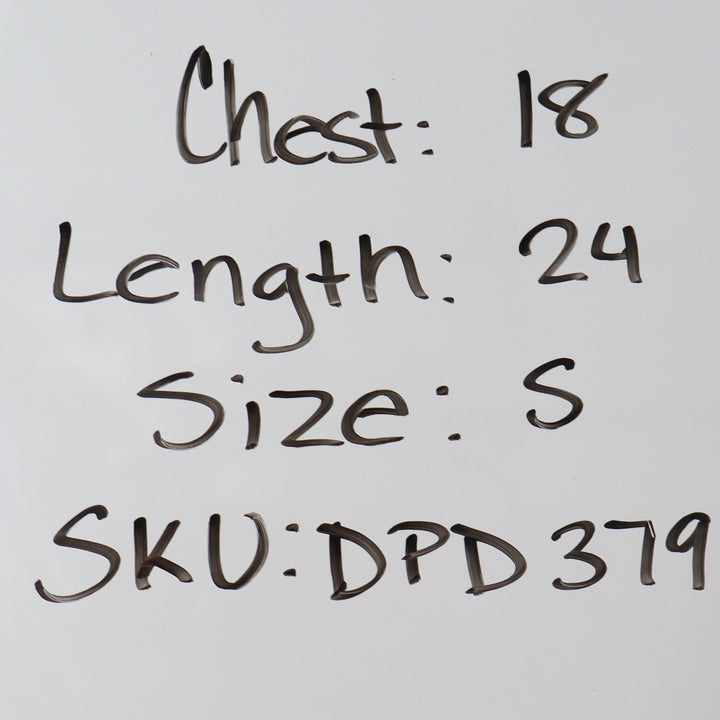 Chest: 18
Length: 24
Size: S
SKU: DPD 379